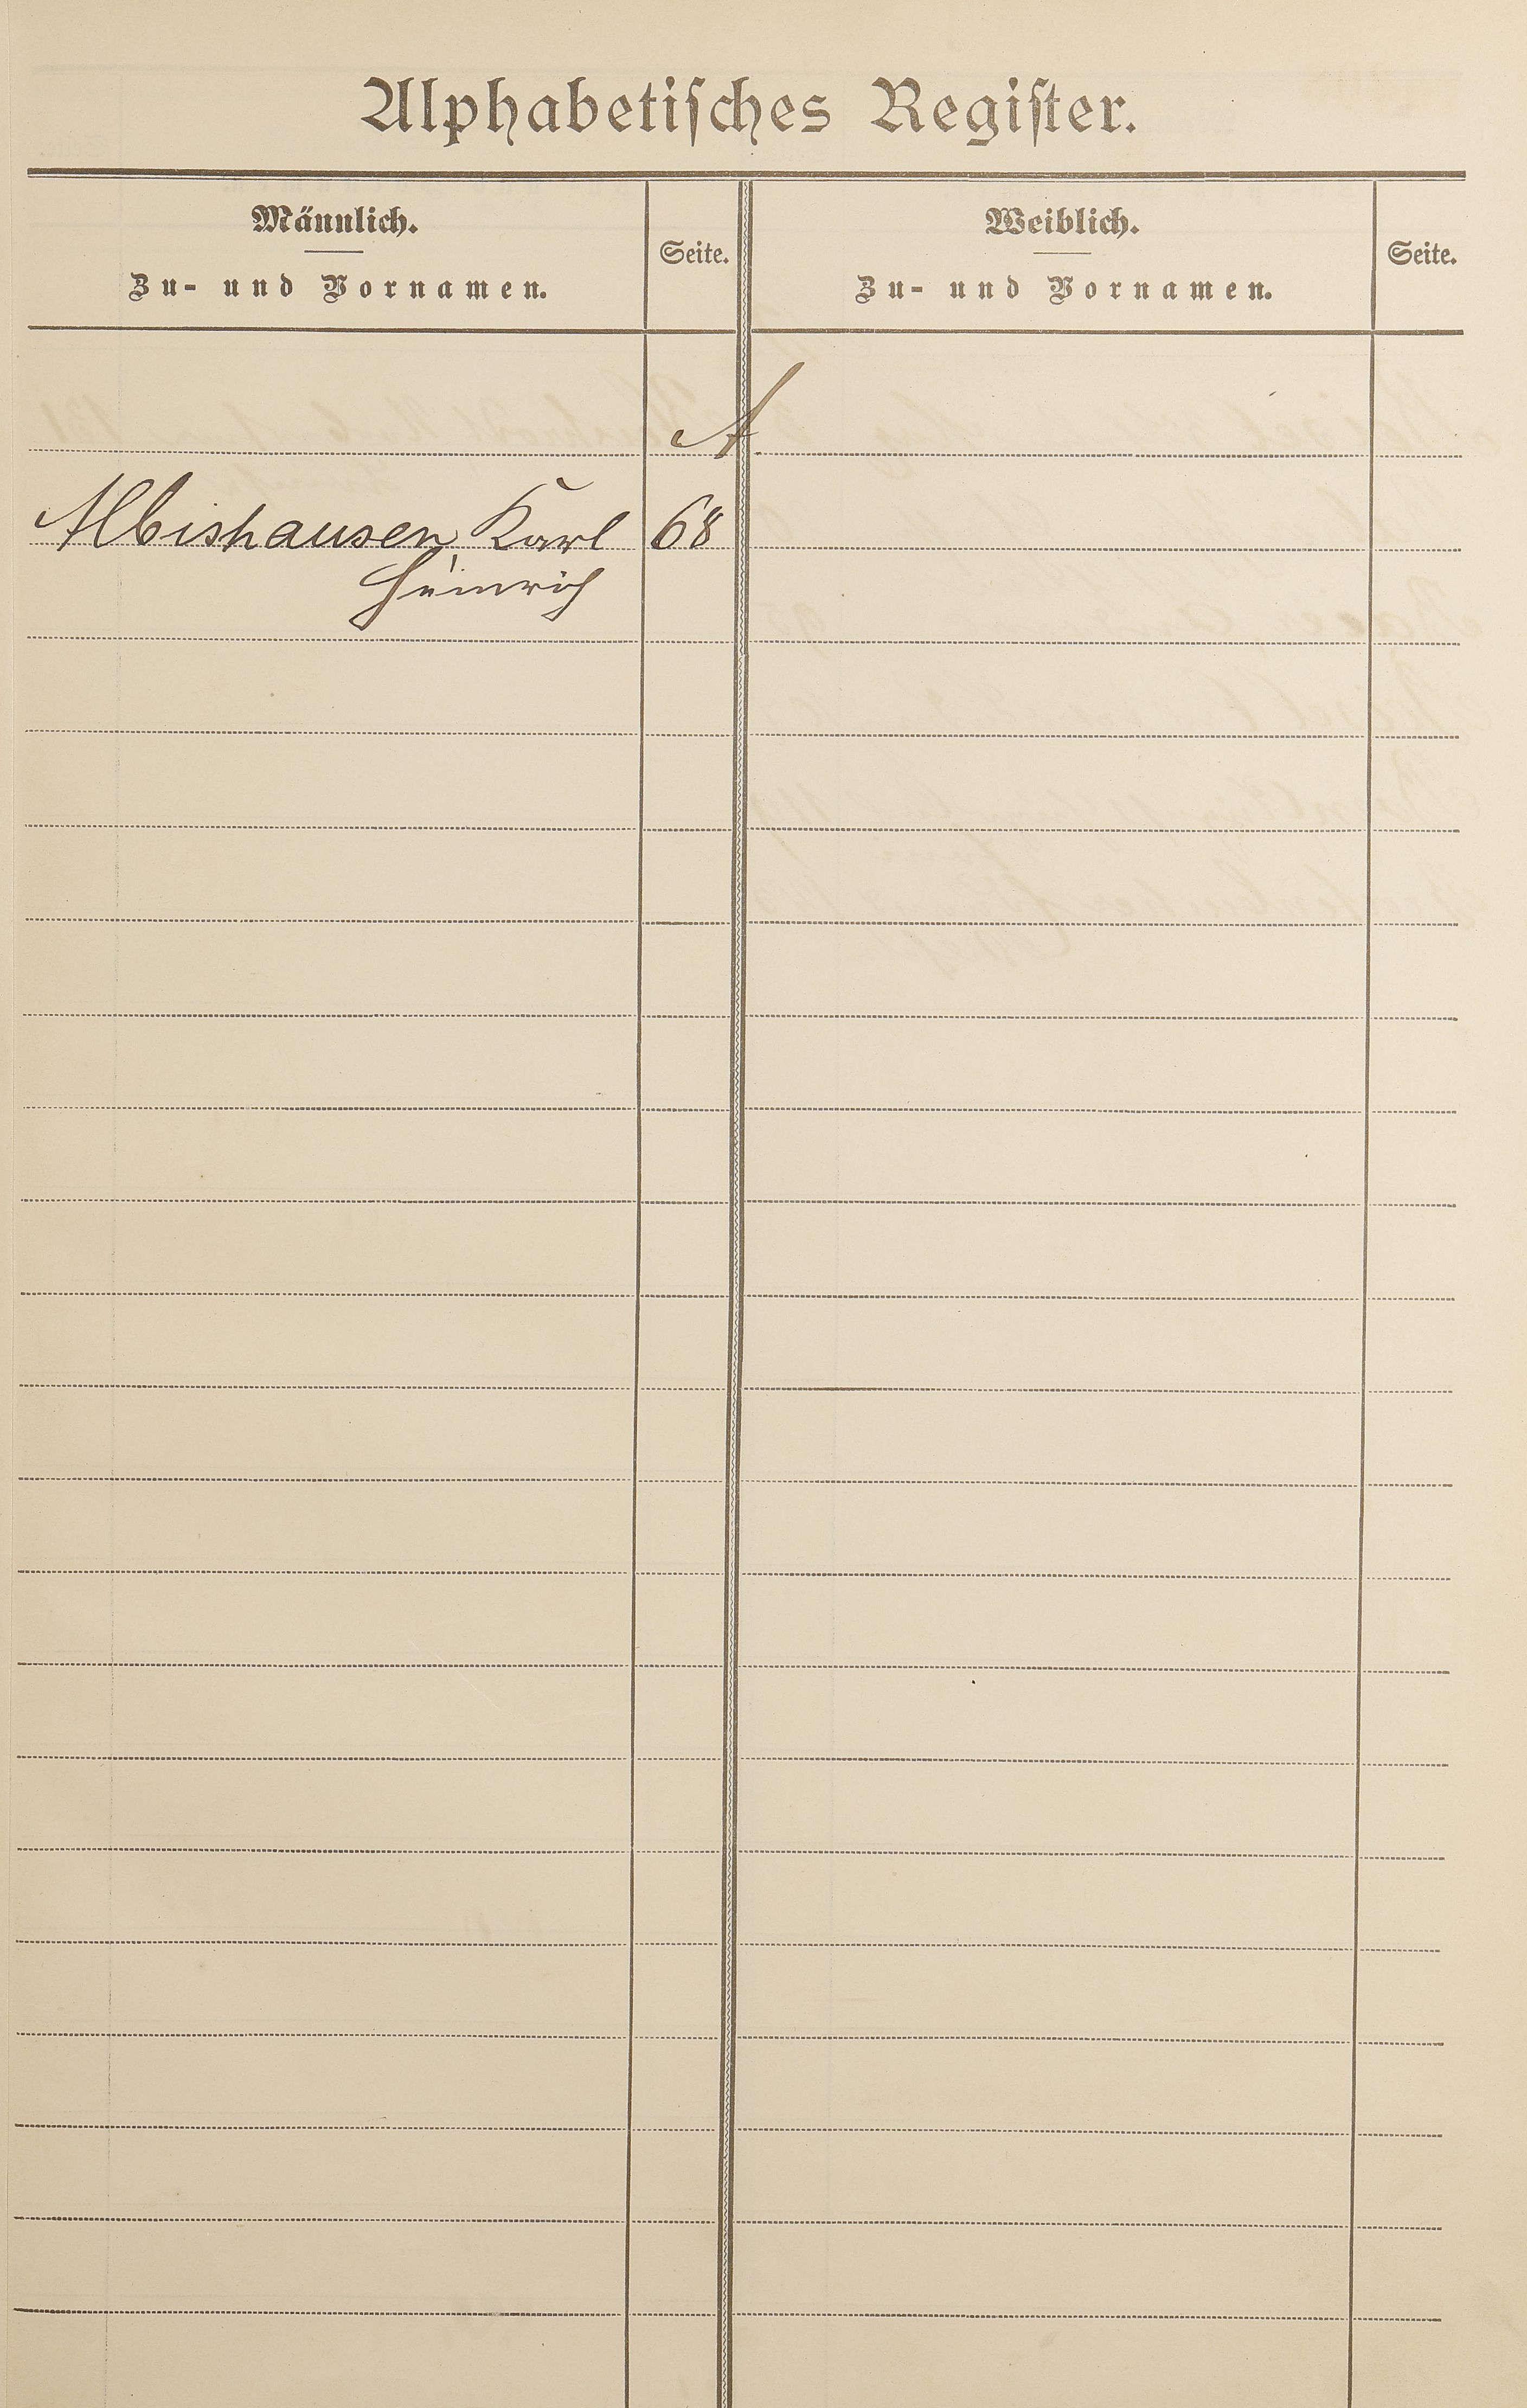 Alphabetisches Register.
Männlich.
Zu- und Vornamen.
Seite.
Weiblich.
Zu- und Vornamen.
Seite.
A
Albishausen, Karl 68
Heinrich